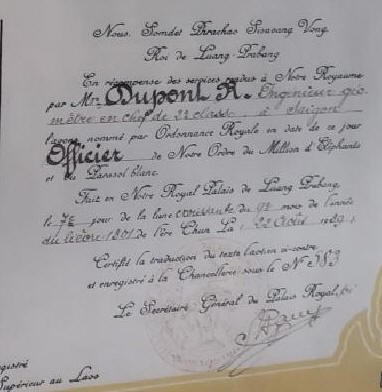 Nous, Somdet Phrachao Sisavang Vong,
Roi de Luang-Prabang
En récompense des services rendus à Notre Royaume
par Mr DUPONT R. Engénieur géo-
mètre en chef de 2è class. à Saïgon
l'avons nommé par Ordonnance Royale en date de ce jour
Officier de Notre Ordre du Million d'Éléphants
et du Parasol blanc.
Fait en Notre Royal Palais de Luang Prabang,
le 7è jour de la lune croissante du 9è mois de l'année
de l'ère Chun La 22 Août
Certifié la traduction du texte laotien ci-contre
et enregistré à la Chancellerie sous le N° 383
Le Secrétaire Général du Palais Royal,
gistré
Supérieur au Laos